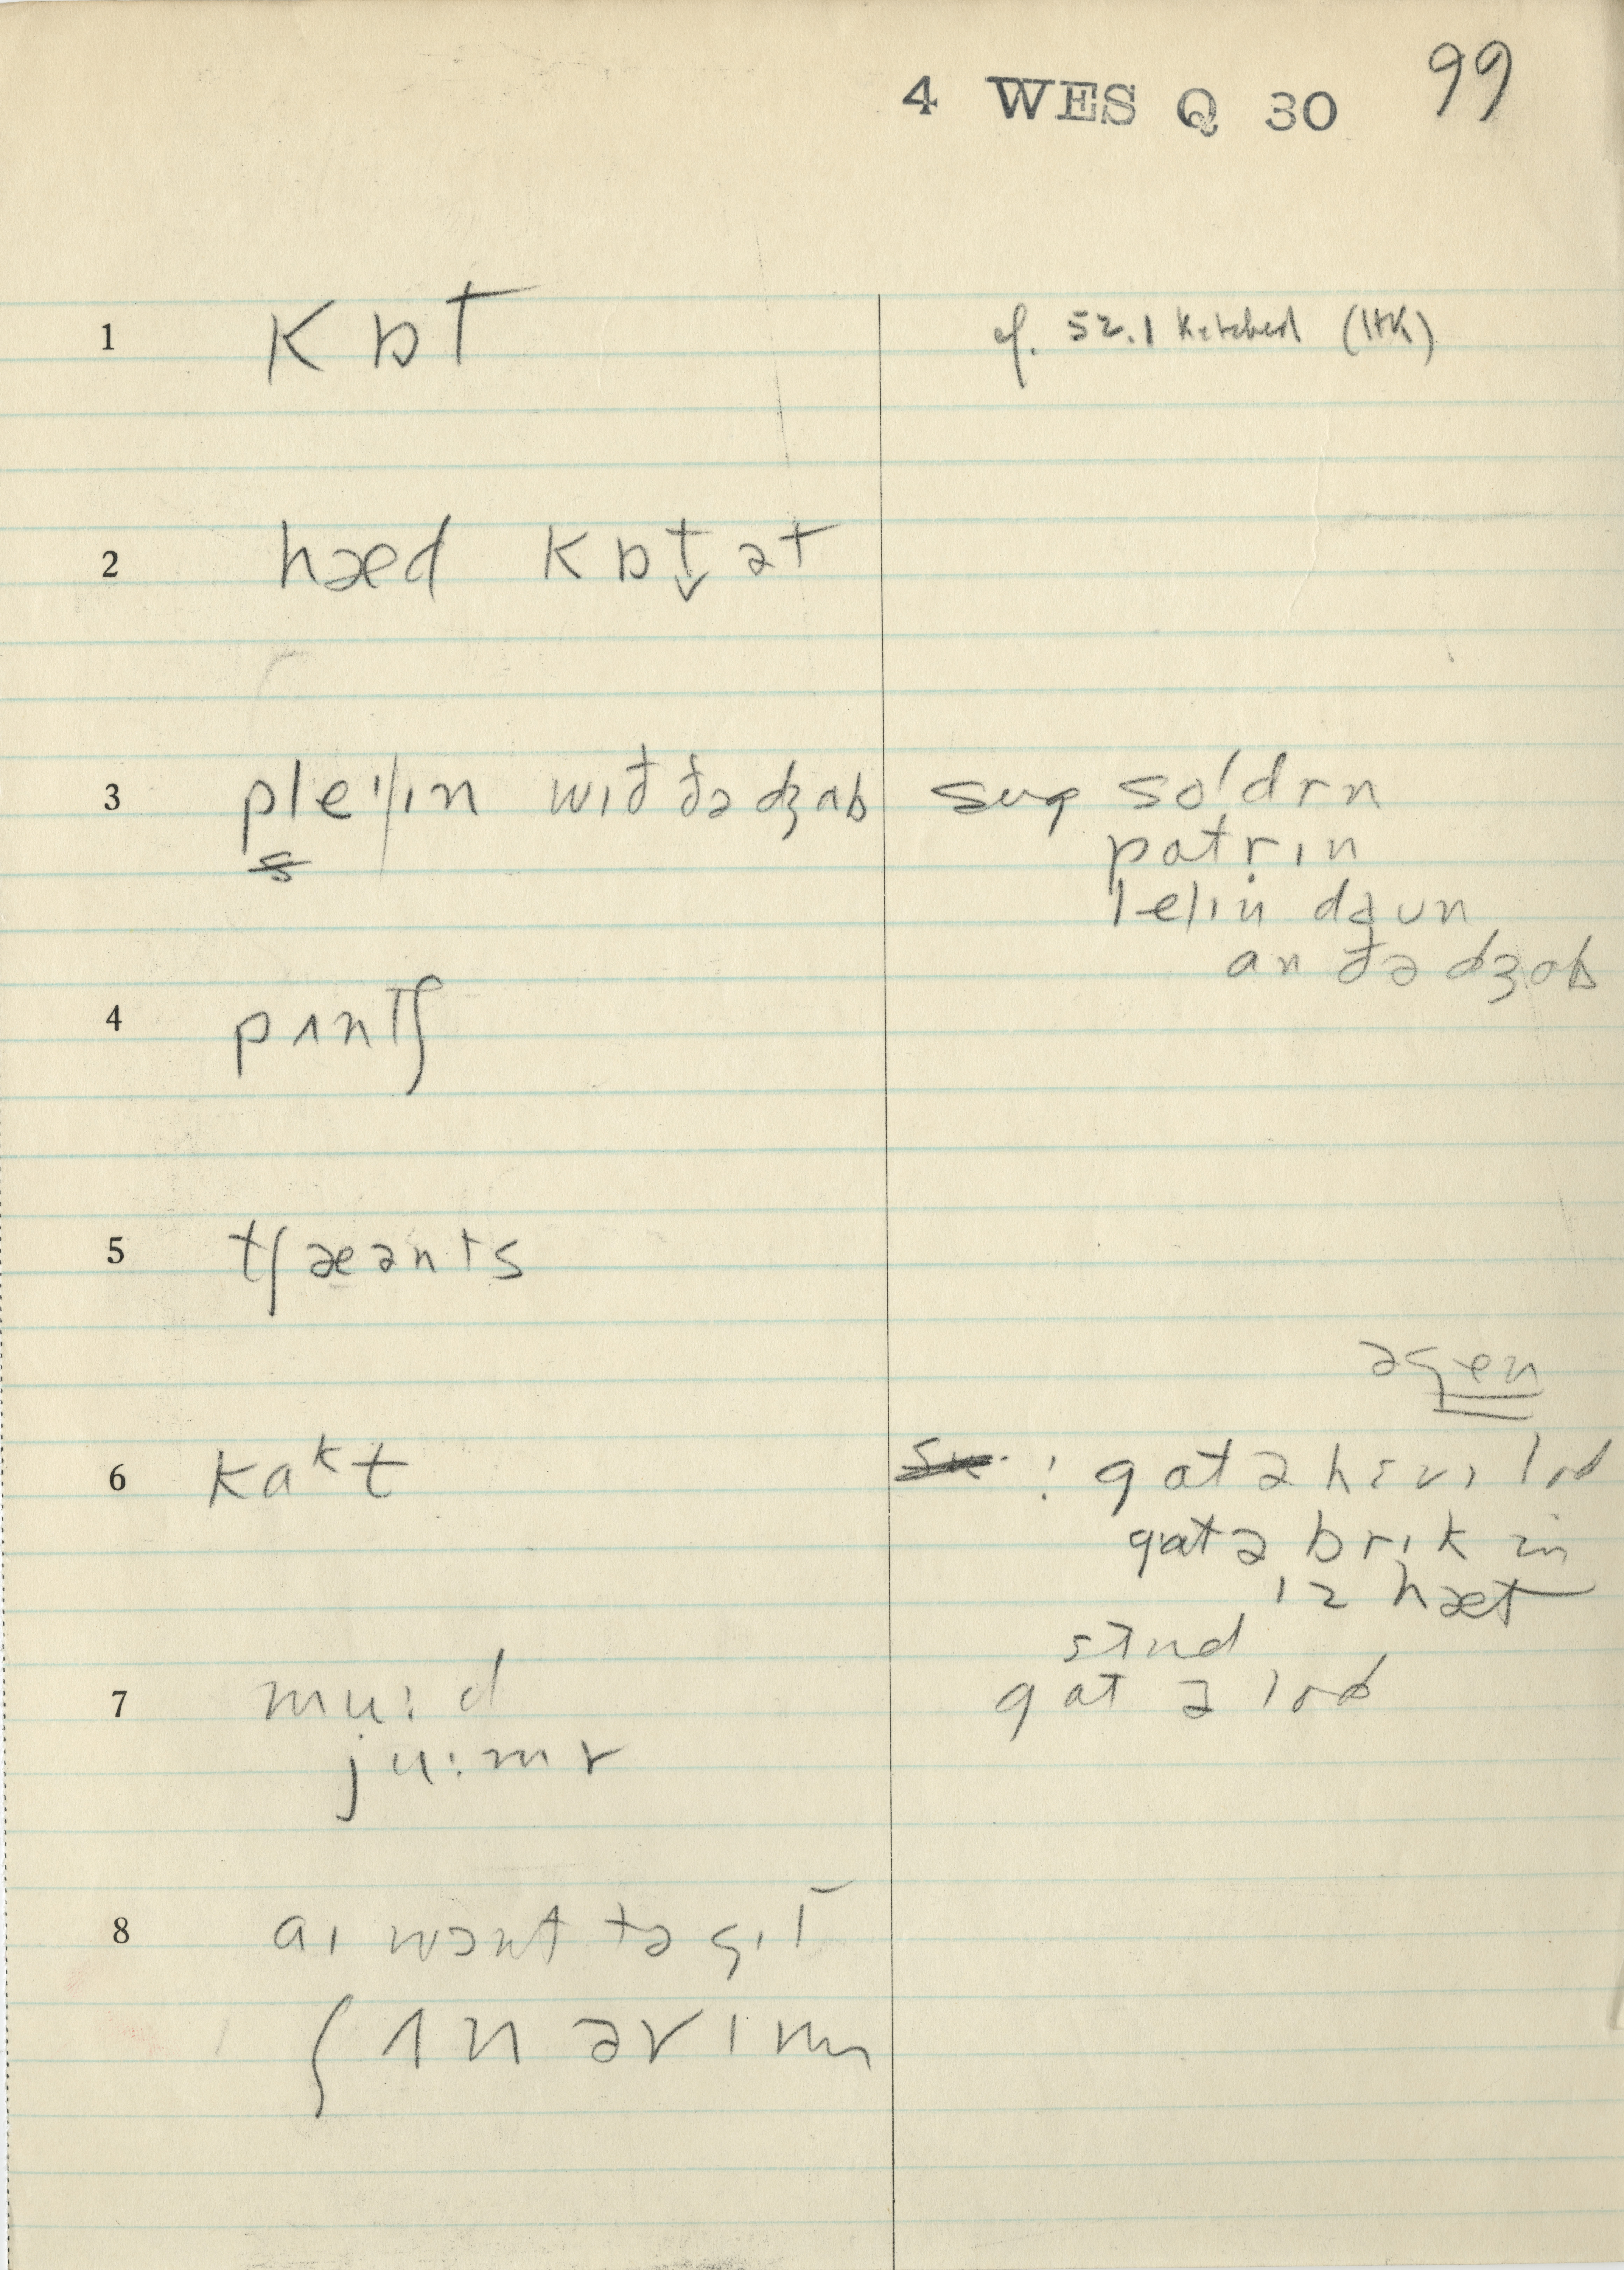 4 WES Q 30 99
1 kɒt cf. 52.1 ketched (HK)
2 hæd kɒt̬ ət
3 pleɪ|ɪn wɪð ðə dʒab sug soldrn
s
patrɪn
le|ɪn daun
an ðə dʒab
4 pʌntʃ
5 tʃæənts
əgen
6 kaᵏt : gat ə hɛvɪ lod
gat ə brɪk ɪn
ɪz hæt
stʌnd
7 mu:d gat ə lod
ju:mr
8 aɪ want tə gɪt
ʃʌn əv ɪm